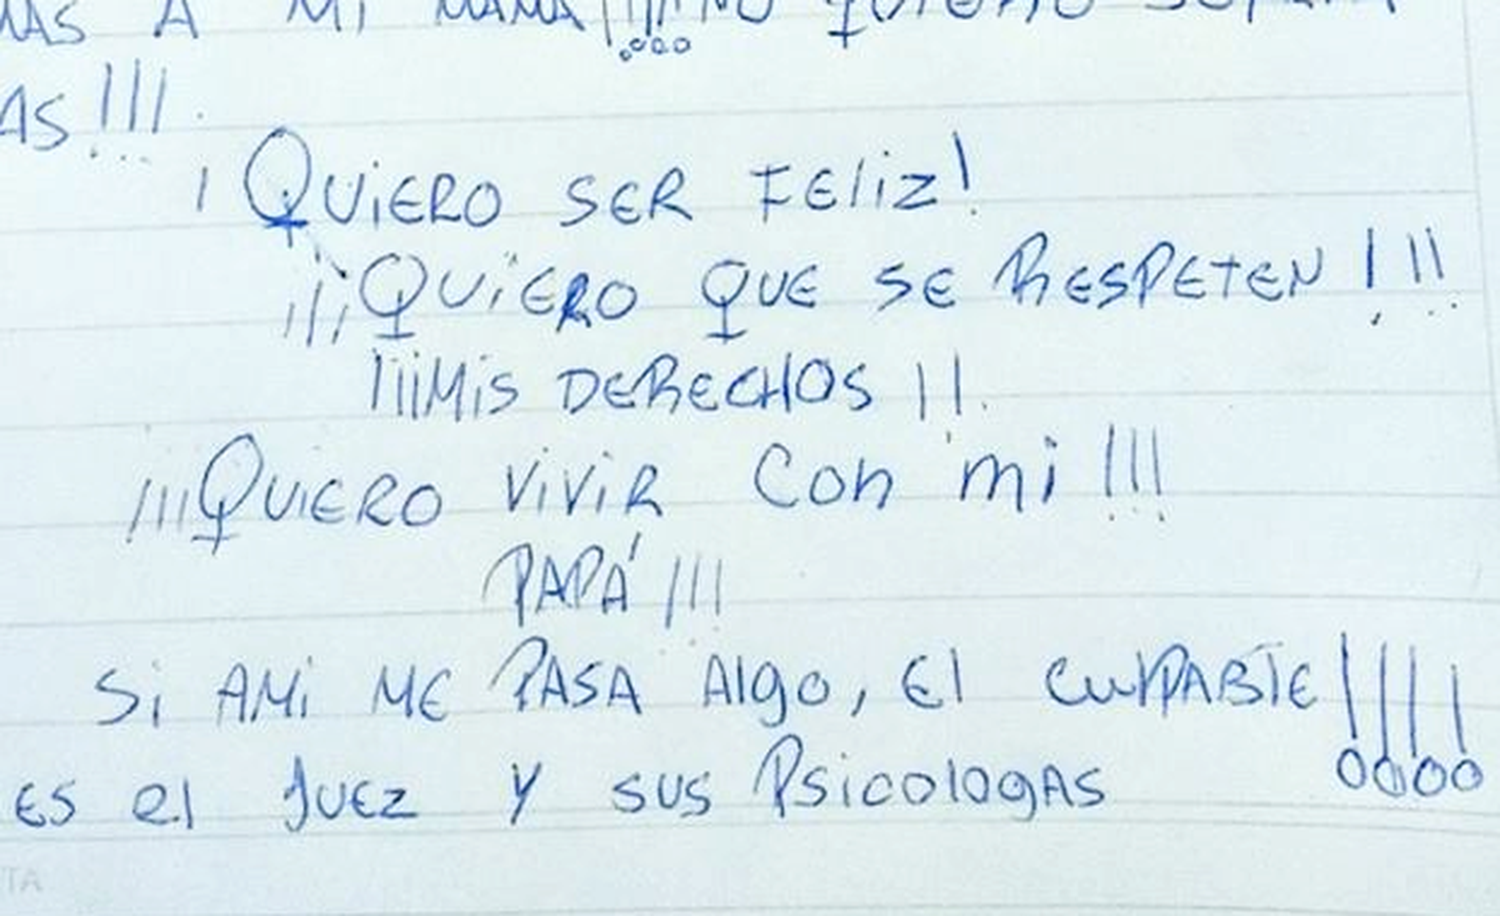 MAS A MI MAMÁ!!!! NO QUIERO
AS!!!
¡QUIERO SER FEliz!
¡¡¡QUIERO QUE SE RESPETEN!!!
¡¡¡MIS DERECHOS!!
¡¡¡QUIERO ViViR Con mi!!!
PAPÁ!!!
Si AMi ME PASA Algo, El CulPABlE!!!!
ES el JUEZ Y SUS PSicologAS
TA